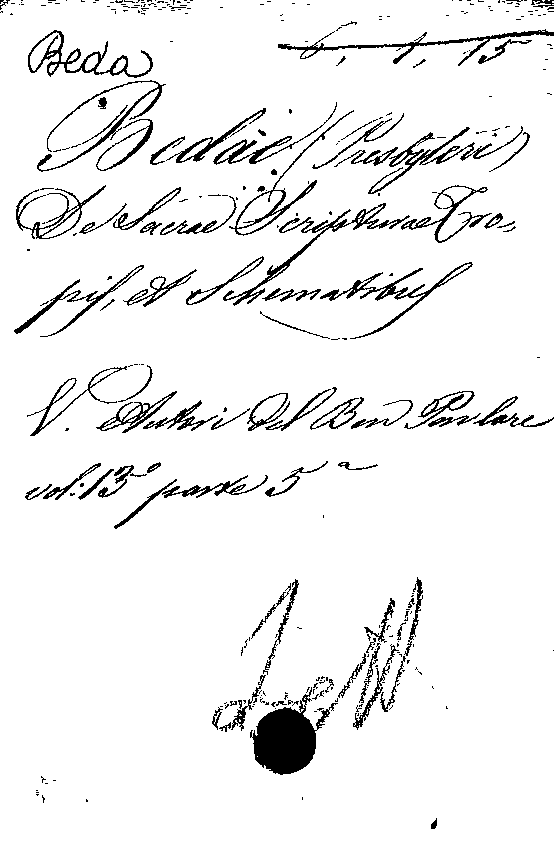 Beda 6, 1, 15
Bedae (Presbyteri)
De Sacrae Scripturae Tro-
pis, et Schematibus
V. Autori del Ben Parlare
vol: 13° parte 5ª